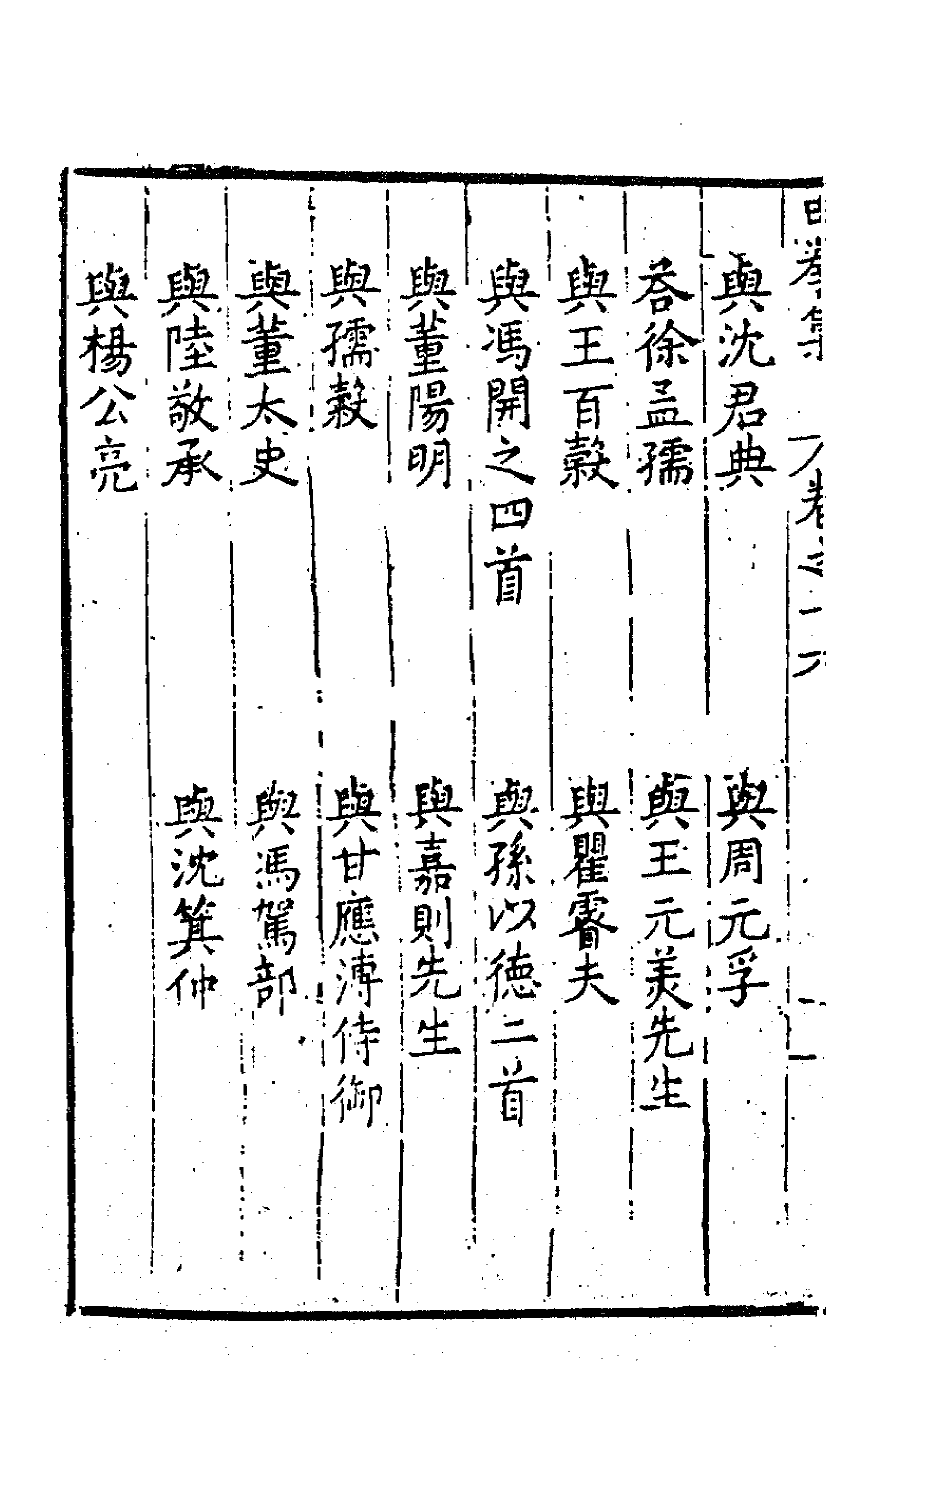 與沈君典　與周元孚
荅徐孟孺　與王元美先生
與王百穀　與瞿睿夫
與馮開之四首　與孫以德二首
與董陽明　與嘉則先生
與孺穀　與甘應溥侍御
與董太史　與馮駕部
與陸敬承　與沈箕仲
與楊公亮